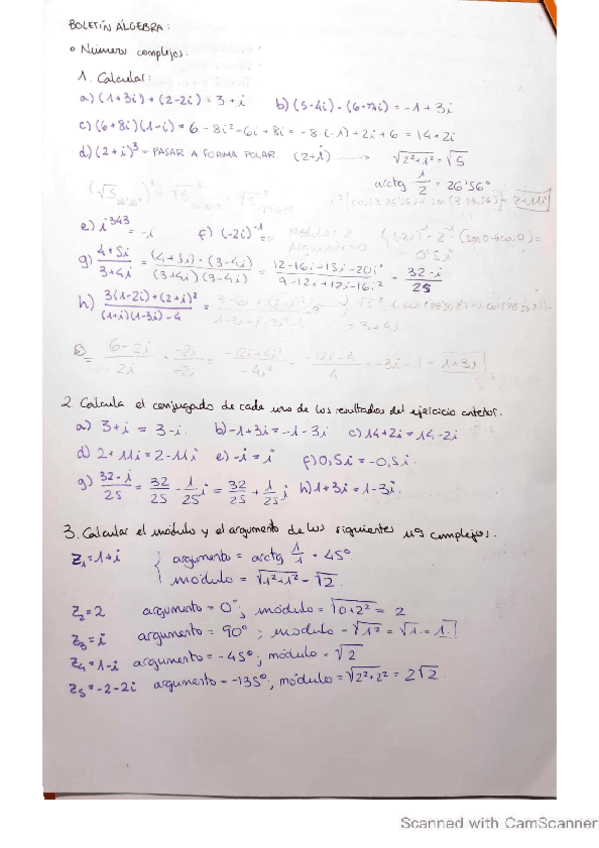 BOLETÍN ÁLGEBRA:
o Números complejos:
1. Calcular:
a) (1+3i)+(2-2i) = 3+i b) (5-4i)-(6-7i) = -1+3i
c) (6+8i)(1-i) = 6-8i²-6i+8i = -8·(-1)+2i+6 = 14+2i
d) (2+i)³ = PASAR A FORMA POLAR. (2+i) → √2²+1² = √5
arctg 1/2 = 26'56°
e) i³⁴³ = -i f) (-2i)⁻¹ Módulo = 2
Argumento = 0
0'5i
g) 4+5i/3+4i = (4+5i)·(3-4i)/(3+4i)(3-4i) = 12-16i+15i-20i²/9-12i+12i-16i² = 32-i/25
h) 3(1-2i)+(2+i)²/(1+i)(1-3i)-4
= 3+4i
= 6-2i/2i · -2i/-2i = -12i+4i²/-4i² = -12i-4/4 = -3i-1 = 1+3i
2. Calcula el conjugado de cada uno de los resultados del ejercicio anterior.
a) 3+i = 3-i. b) -1+3i = -1-3i c) 14+2i = 14-2i
d) 2+11i = 2-11i e) -i = i f) 0,5i = -0,5i.
g) 32-i/25 = 32/25 - 1/25 i = 32/25 + 1/25 i h) 1+3i = 1-3i.
3. Calcular el módulo y el argumento de los siguientes nºs complejos.
Z₁ = 1+i argumento = arctg 1/1 = 45°
módulo = √1²+1² = √2.
Z₂ = 2 argumento = 0°; módulo = √0+2² = 2
Z₃ = i argumento = 90°; módulo = √1² = √1 = 1
Z₄ = 1-i argumento = -45°; módulo = √2
Z₅ = -2-2i argumento = -135°, módulo = √2²+2² = 2√2.
Scanned with CamScanner